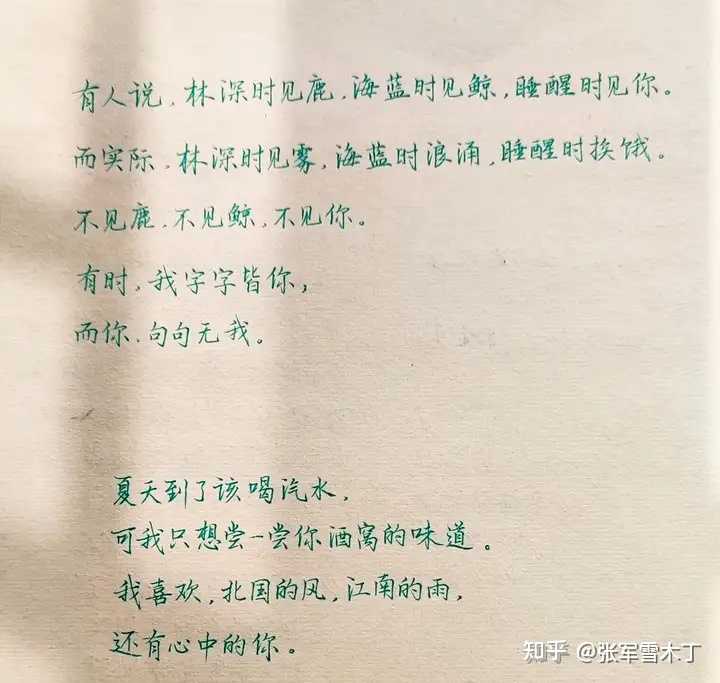 有人说，林深时见鹿，海蓝时见鲸，睡醒时见你。
而实际，林深时见雾，海蓝时浪涌，睡醒时挨饿。
不见鹿，不见鲸，不见你。
有时，我字字皆你，
而你，句句无我。
夏天到了该喝汽水，
可我只想尝一尝你酒窝的味道。
我喜欢，北国的风，江南的雨，
还有心中的你。
知乎 @张军雪木丁